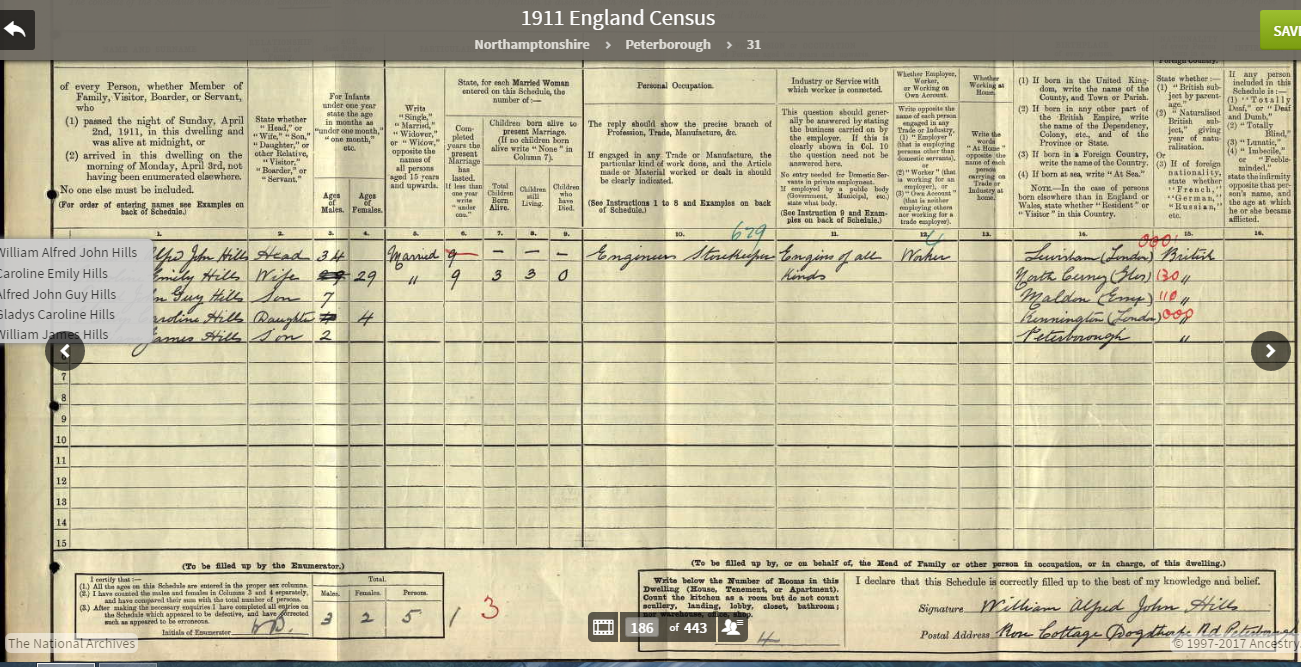 1911 England Census
SAVE
Northamptonshire > Peterborough > 31
of every Person, whether Member of
Family, Visitor, Boarder, or Servant,
who
(1) passed the night of Sunday, April
2nd, 1911, in this dwelling and
was alive at midnight, or
(2) arrived in this dwelling on the
morning of Monday, April 3rd, not
having been enumerated elsewhere.
No one else must be included.
(For order of entering names see Examples on
back of Schedule.)
State whether
"Head," or
"Wife," "Son,"
"Daughter," or
other Relative,
"Visitor,"
"Boarder," or
"Servant."
For Infants
under one year
state the age
in months as
"under one month,"
"one month,"
etc.
Ages
of
Males.
Ages
of
Females.
Write
"Single,"
"Married,"
"Widower,"
or "Widow,"
opposite the
names of
all persons
aged 15 years
and upwards.
State, for each Married Woman
entered on this Schedule, the
number of:—
Com-
pleted
years the
present
Marriage
has
lasted.
If less than
one year
write
"under
one."
Children born alive to
present Marriage.
(If no children
born alive write "None" in
Column 7).
Total
Children
Born
Alive.
Children
still
Living.
Children
who
have
Died.
Personal Occupation.
The reply should show the precise branch of
Profession, Trade, Manufacture, &c.
If engaged in any Trade or Manufacture, the
particular kind of work done, and the Article
made or Material worked or dealt in should
be clearly indicated.
(See Instructions 1 to 8 and Examples on back
of Schedule.)
Industry or Service with
which worker is connected.
This question should gener-
ally be answered by stating
the business carried on by
the employer. If this is
clearly shown in Col. 10
the question need not be
answered here.
No entry needed for Domestic Ser-
vants in private employment.
If employed by a public body
(Government, Municipal, etc.)
state what body.
(See Instruction 9 and Exam-
ples on back of Schedule.)
Whether Employer,
Worker,
or Working on
Own Account.
Write opposite the
name of each person
engaged in any
Trade or Industry,
(1) "Employer"
(that is employing
persons other than
domestic servants),
or
(2) "Worker" (that
is working for an
employer), or
(3) "Own Account"
(that is neither
employing others
nor working for a
trade employer).
Whether
Working at
Home.
Write the
words
"At Home"
opposite the
name of each
person
carrying on
Trade or
Industry at
home.
(1) If born in the United King-
dom, write the name of the
County, and Town or Parish.
(2) If born in any other part of
the British Empire, write
the name of the Dependency,
Colony, etc., and of the
Province or State.
(3) If born in a Foreign Country,
write the name of the Country.
(4) If born at sea, write "At Sea."
NOTE.—In the case of persons
born elsewhere than in England or
Wales, state whether "Resident" or
"Visitor" in this Country.
State whether:—
(1) "British sub-
ject by parent-
age,"
(2) "Naturalised
British sub-
ject," giving
year of natu-
ralisation.
Or
(3) If of foreign
nationality,
state whether
"French,"
"German,"
"Russian,"
etc.
If any person
included in this
Schedule is:—
(1) "Totally
Deaf," or "Deaf
and Dumb,"
(2) "Totally
Blind,"
(3) "Lunatic,"
(4) "Imbecile,"
or "Feeble-
minded,"
state the infirmity
opposite that per-
son's name, and
the age at which
he or she became
afflicted.
1. 2. 3. 4. 5. 6. 7. 8. 9. 10. 679 11. 12. 4 13. 14. 000 15. 16.
William Alfred John Hills
Caroline Emily Hills
Alfred John Guy Hills
Gladys Caroline Hills
William James Hills
John Hills Head 34 Married 9 — — — Engineers Storekeeper Engines of all Worker Lewisham (London) British
Emily Hills Wife 29 " 9 3 3 0 Kinds North Cerney (Glos) 130 "
Guy Hills Son 7 Maldon (Essex) 110 "
Caroline Hills Daughter 4 Kennington (London) 000 "
James Hills Son 2 Peterborough "
7
8
9
10
11
12
13
14
15
(To be filled up by the Enumerator.)
I certify that:—
(1.) All the ages on this Schedule are entered in the proper sex columns.
(2.) I have counted the males and females in Columns 3 and 4 separately,
and have compared their sum with the total number of persons.
(3.) After making the necessary enquiries I have completed all entries on
the Schedule which appeared to be defective, and have corrected
such as appeared to be erroneous.
Initials of Enumerator
Total.
Males. Females. Persons.
3 2 5 1 3
(To be filled up by, or on behalf of, the Head of Family or other person in occupation, or in charge, of this dwelling.)
Write below the Number of Rooms in this
Dwelling (House, Tenement, or Apartment).
Count the kitchen as a room but do not count
scullery, landing, lobby, closet, bathroom;
nor warehouse, office, shop.
4
I declare that this Schedule is correctly filled up to the best of my knowledge and belief.
Signature William Alfred John Hills
Postal Address Cottage Dogsthorpe Rd Peterborough
186 of 443
The National Archives
© 1997-2017 Ancestry